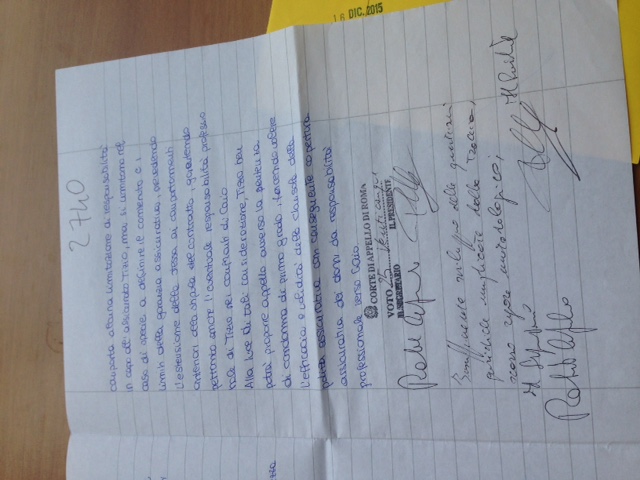 16 DIC. 2015
2740
comporta alcuna limitazione di responsabilità
in capo all'assicurato Tizio, ma si limitano nel
caso di specie a definire il contenuto e i
limiti della garanzia assicurativa, prevedendo
l'estensione della stessa ai comportamenti
anteriori alla stipula del contratto, garantendo
pertanto anche l'eventuale responsabilità professio
nale di Tizio nei confronti di Caio
Alla luce di tali considerazioni, Tizio ben
potrà proporre appello avverso la sentenza
di condanna di primo grado, facendo valere
l'efficacia e validità della clausola della
polizza assicurativa con conseguente copertura
assicurativa dei danni da responsabilità
professionale verso Caio
CORTE DI APPELLO DI ROMA
VOTO 25
IL SEGRETARIO IL PRESIDENTE
sviluppo delle questioni
giuridiche implicate dalla traccia,